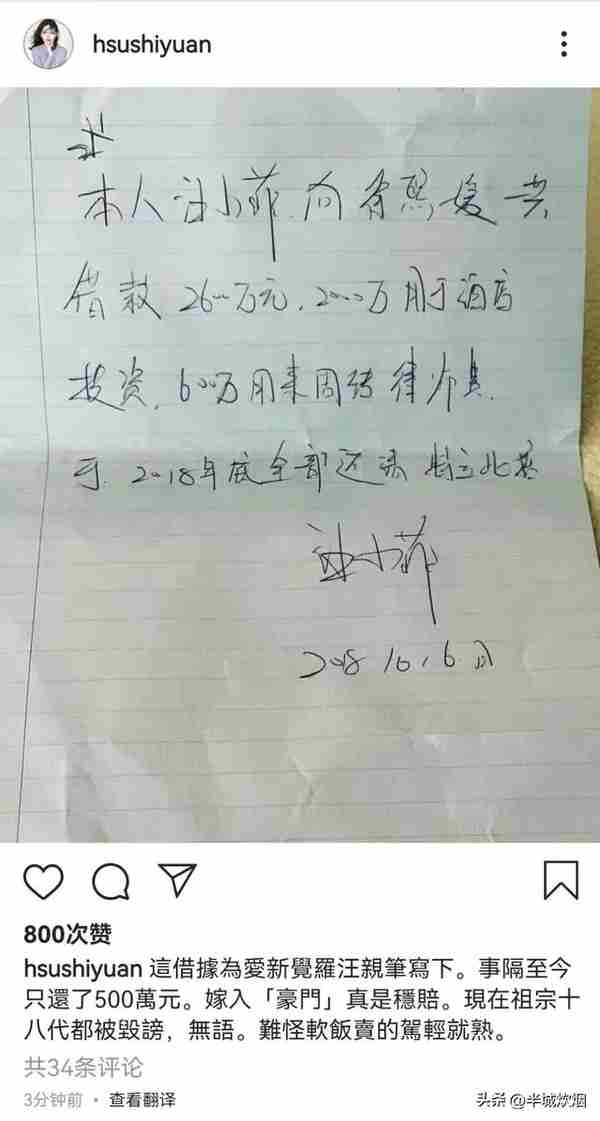 hsushiyuan
本人汪小菲，向徐熙媛共
借款 2600万元，2000万用于酒店
投资，600万用来周转律师费，
于 2018年底全部还清 特立此据
汪小菲
2018 10，6日
800次赞
hsushiyuan 這借據為愛新覺羅汪親筆寫下。事隔至今
只還了500萬元。嫁入「豪門」真是穩賠。現在祖宗十
八代都被毀謗，無語。難怪軟飯賣的駕輕就熟。
共34条评论
3分钟前 · 查看翻译
头条 @半城炊烟